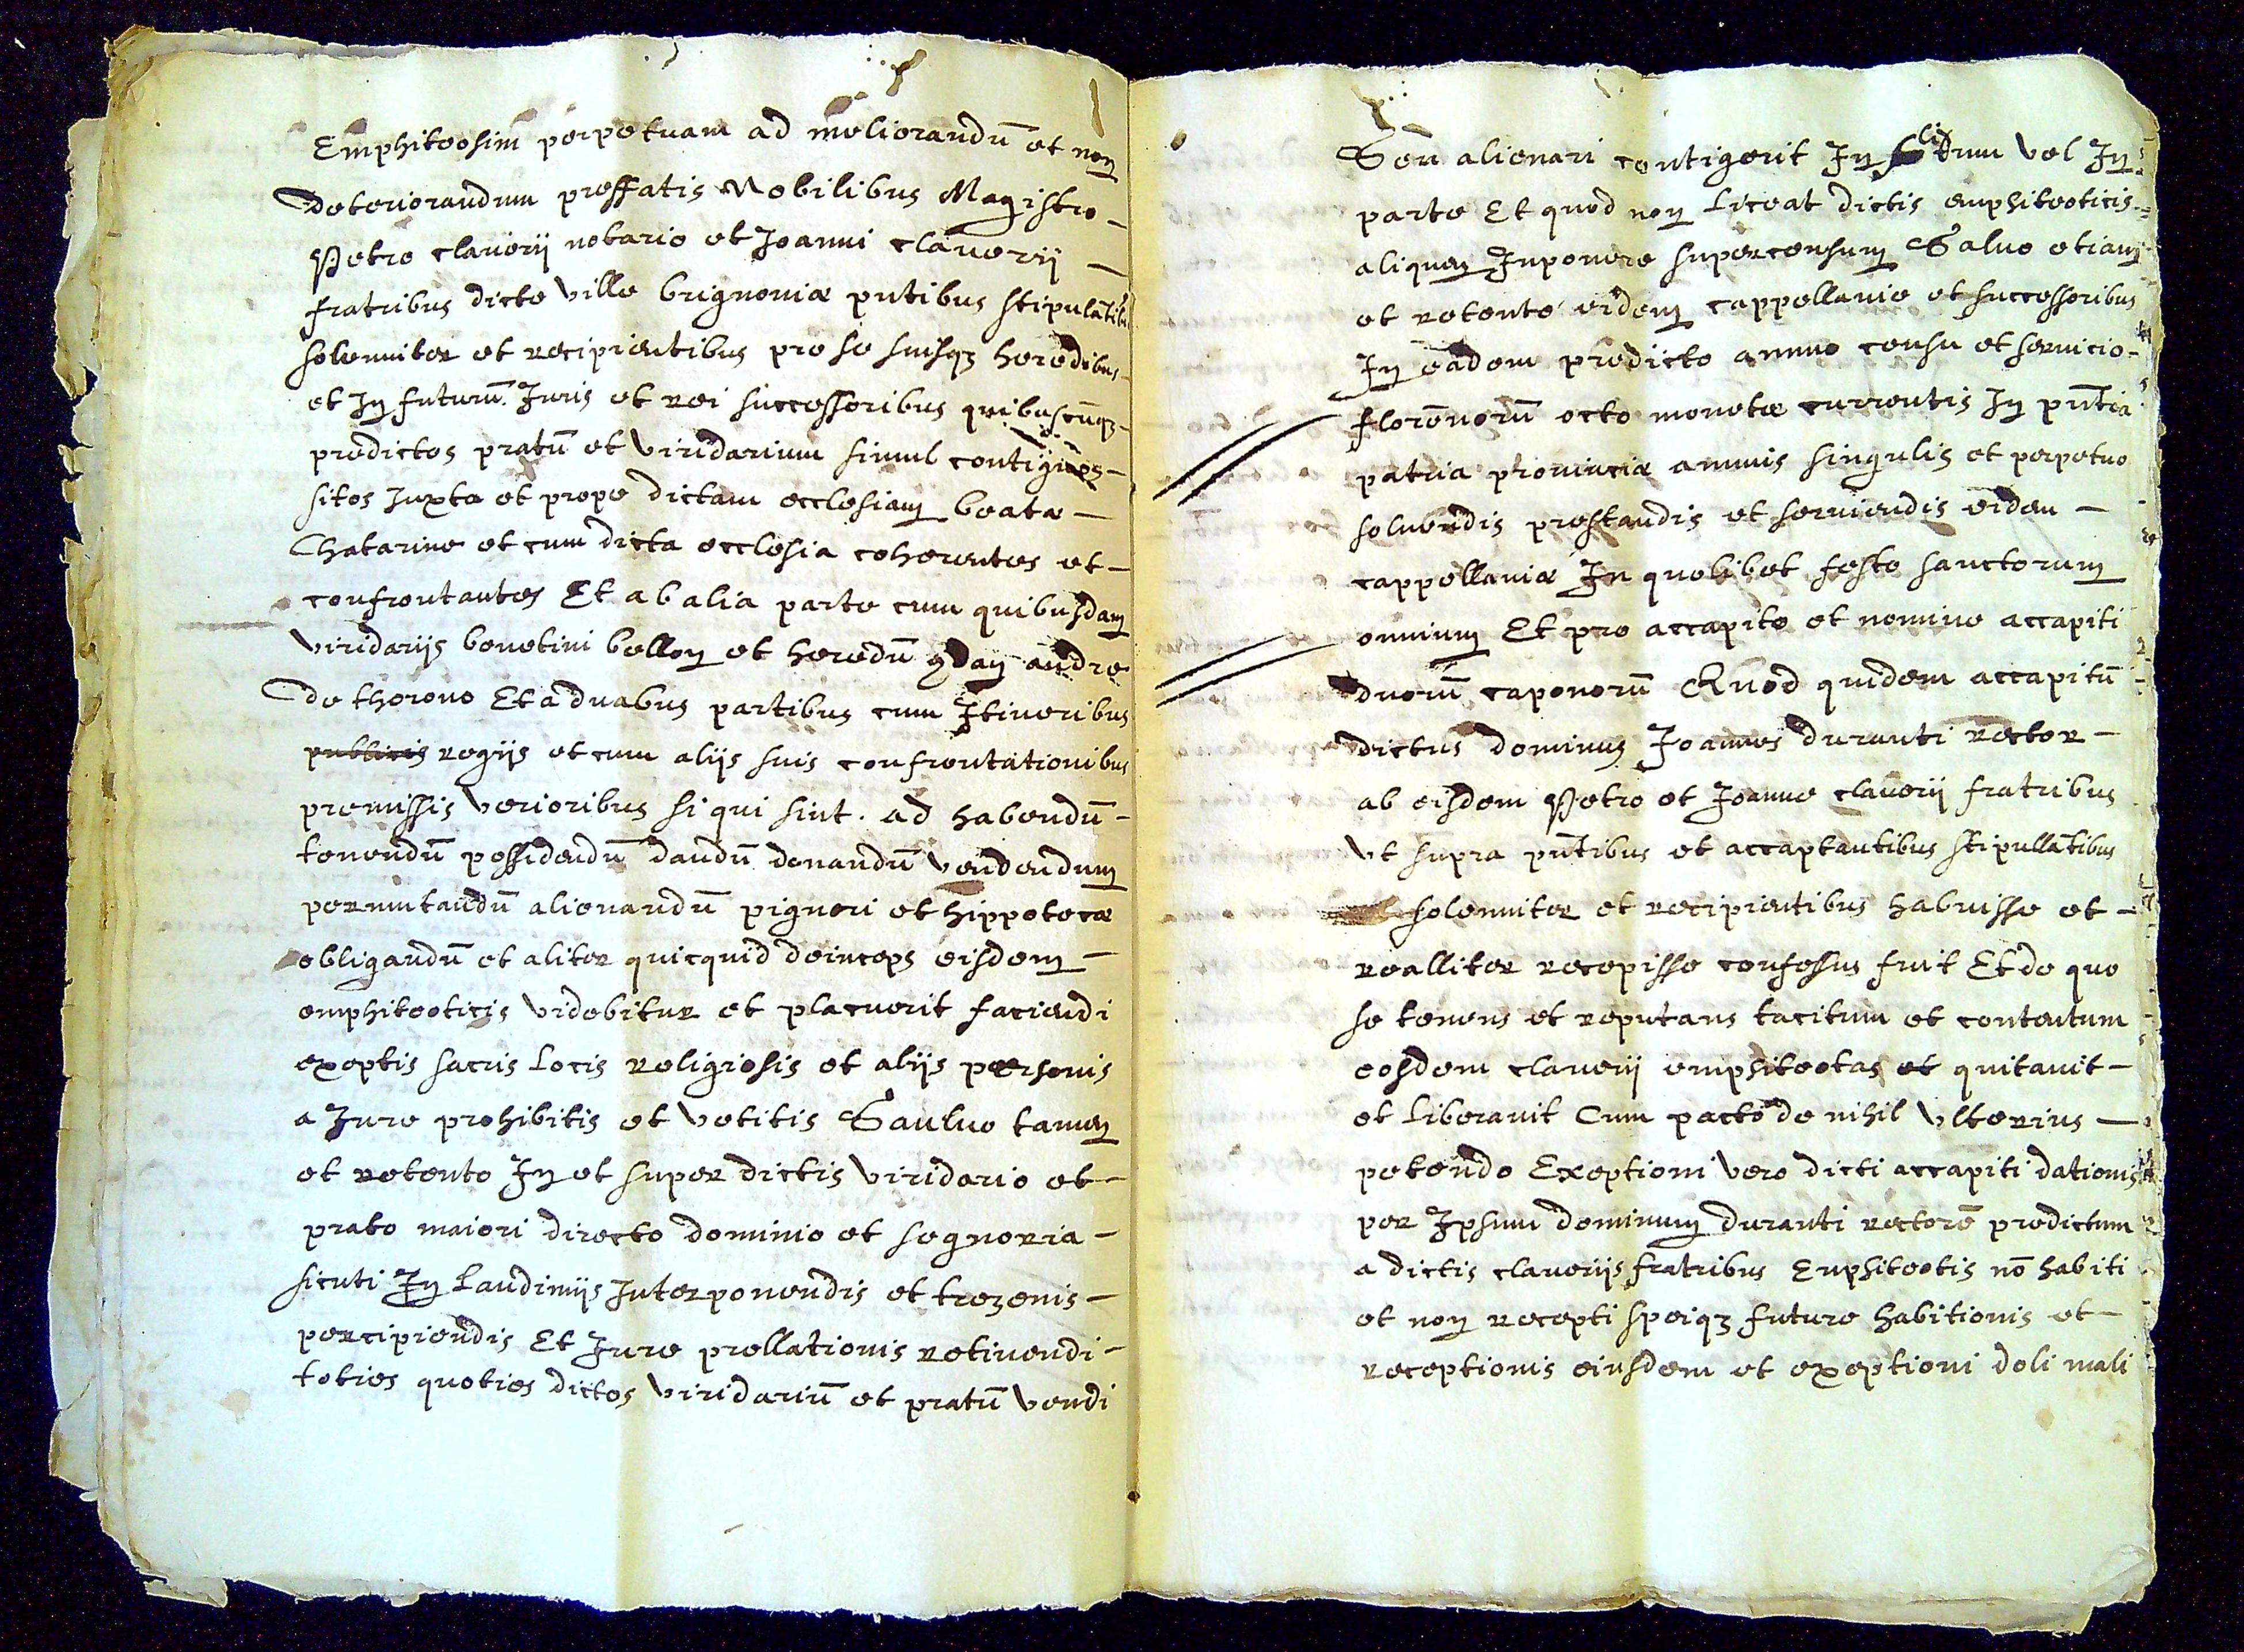 Emphiteosim perpetuam ad meliorandū et non
Deteriorandum preffatis Nobilibus Magistro
Petro claverij notario et Joanni claverij
fratribus dicte ville brignoniæ pñtibus stipulātibus
solenniter et recipientibus pro se suisqz heredibus
et In futurū Juris et rei successoribus quibuscūqz
predictos pratū et viridarium simul contiguos
sitos Juxta et prope dictam ecclesiam beatæ
Chatarine et cum dicta ecclesia coherentes et
confrontantes Et ab alia parte cum quibusdam
viridarijs bonetini bellon et heredū qdam andre
De thorono Et a duabus partibus cum Itineribus
publicis regijs et cum alijs suis confrontationibus
premissis verioribus si qui sint. ad habendū
tenendū possidendū dandū donandū vendendum
permutandū alienandū pignori et hippotecæ
obligandū et aliter quicquid deinceps eisdem
emphiteoticis videbitur et placuerit faciendi
exeptis sacris locis religiosis et alijs personis
a Jure prohibitis et vetitis Saulvo tamen
et retento In et super dictis viridario et
prato maiori directo dominio et segnoria
sicuti In laudimijs Interponendis et trezenis
percipiendis Et Jure prellationis retinendi
toties quoties dictos viridariū et pratū vendi
Seu alienari contigerit In solidum vel In
parte Et quod non liceat dictis emphiteoticis
aliquem Inponere supercensum Salvo etiam
et retento eidem cappellanie et successoribus
In eadem predicto annuo censu et servicio
florenorū octo monetæ currentis In pñtia
patria provinciæ annuis singulis et perpetuo
solvendis prestandis et serviendis eidem
cappellaniæ In quolibet festo sanctorum
omnium Et pro accapite et nomine accapiti
duorū caponorū Quod quidem accapitū
dictus dominus Joannes duranti rector
ab eisdem Petro et Joanne claverij fratribus
Vt supra pñtibus et accaptantibus stipullātibus
solenniter et recipientibus habuisse et
realliter recepisse confessus fuit Et de quo
se tenens et reputans tacitum et contentum
eosdem claverij emphiteotas et quitavit
et liberavit Cum pacto de nihil vlterius
petendo Exeptioni vero dicti accapiti dationis
per Ipsum dominum duranti rectorē predictum
a dictis claverijs fratribus Enphiteotis nō habiti
et non recepti speiqz future habitionis et
receptionis eiusdem et exeptioni doli mali